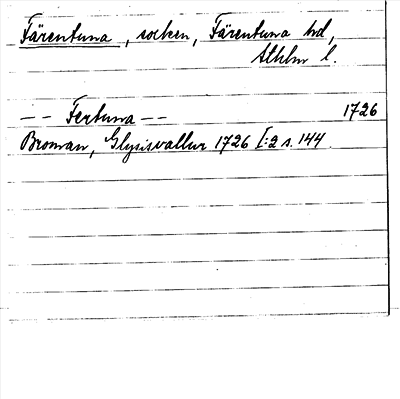 Färentuna, socken, Färentuna hd,
Sthlm l.
-- Fertuna -- 1726
Broman, Glysisvallur 1726 I:2 s. 144.